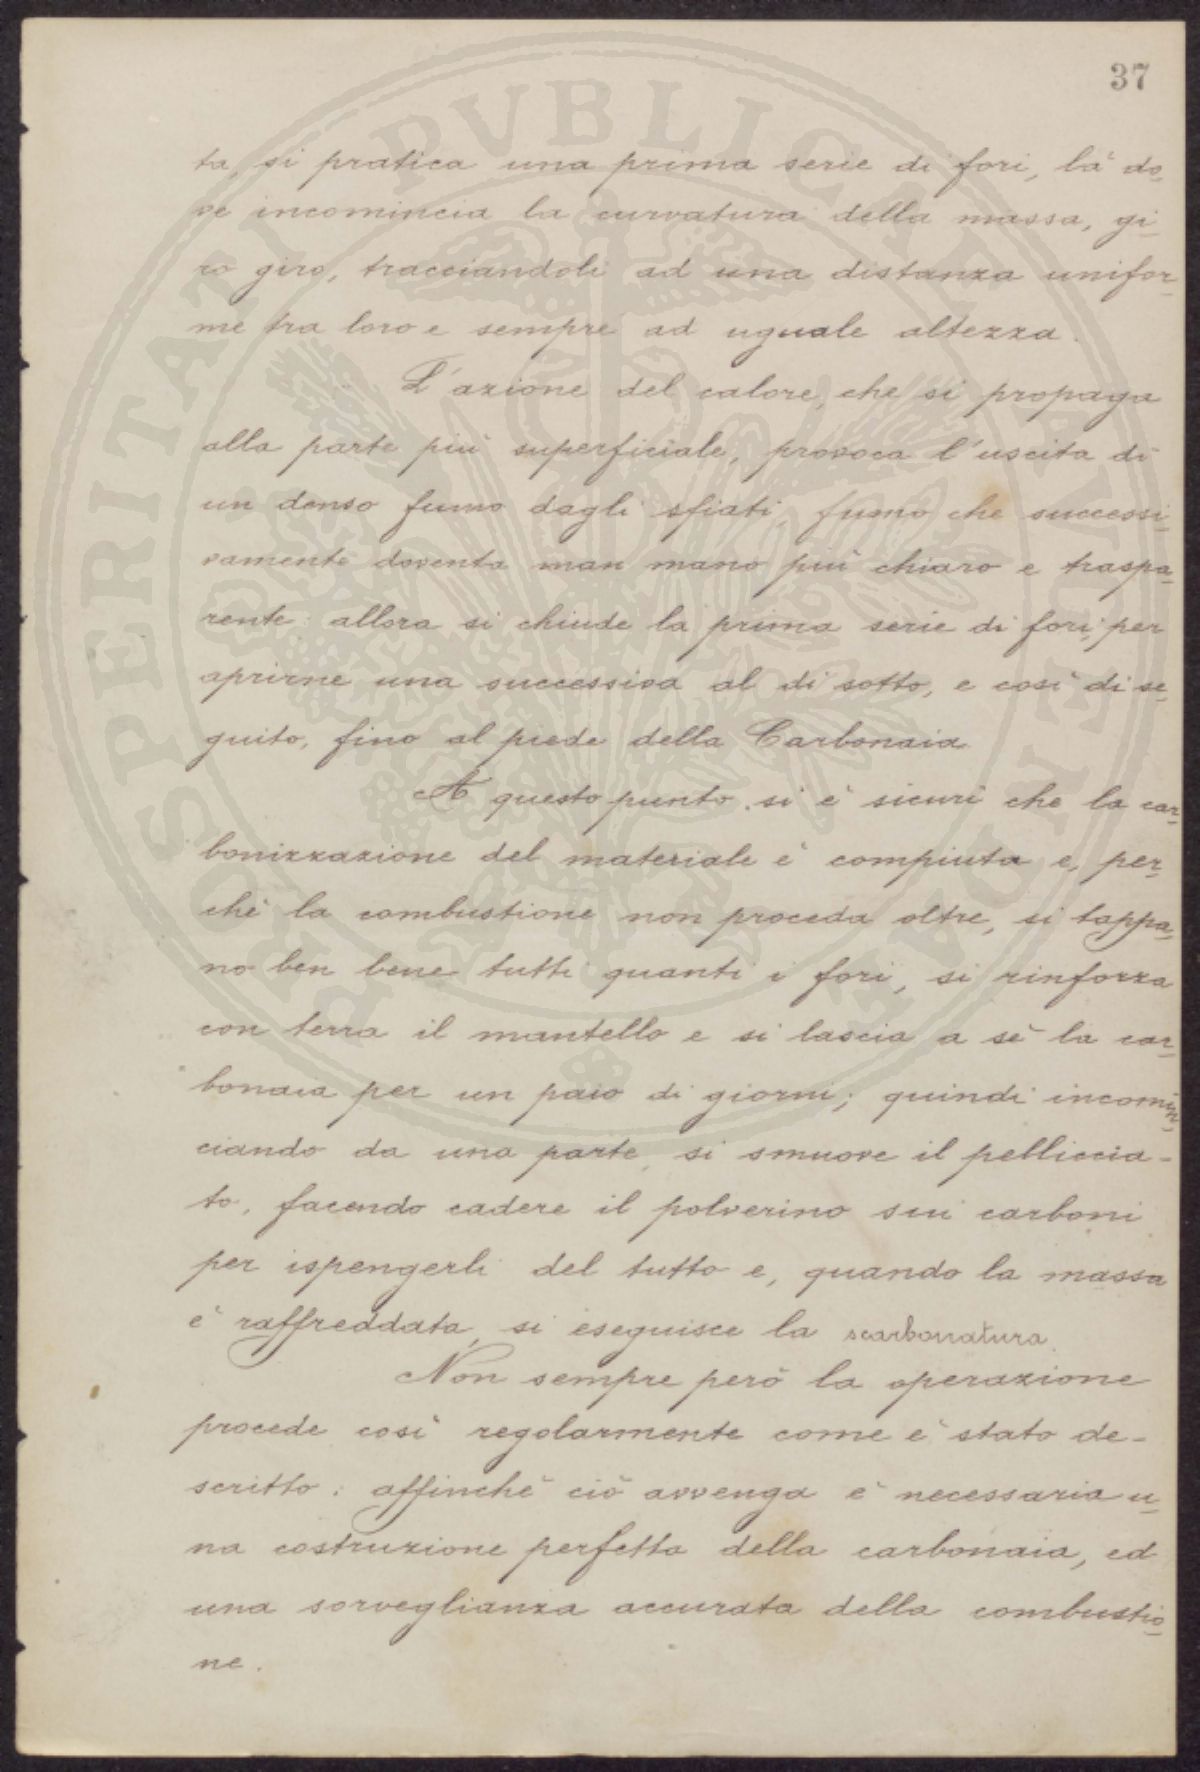 37
ta, si pratica una prima serie di fori, là do-
ve incomincia la curvatura della massa, gi-
ro giro, tracciandoli ad una distanza unifor-
me tra loro e sempre ad uguale altezza.
L'azione del calore, che si propaga
alla parte più superficiale, provoca l'uscita di
un denso fumo dagli sfiati, fumo che successi-
vamente doventa man mano più chiaro e traspa-
rente: allora si chiude la prima serie di fori, per
aprirne una successiva al di sotto, e così di se-
guito, fino al piede della Carbonaia.
A questo punto si è sicuri che la car-
bonizzazione del materiale è compiuta e, per-
chè la combustione non proceda oltre, si tappa-
no ben bene tutti quanti i fori, si rinforza
con terra il mantello e si lascia a sè la car-
bonaia per un paio di giorni; quindi incomin-
ciando da una parte, si smuove il pelliccia-
to, facendo cadere il polverino sui carboni
per ispengerli del tutto e, quando la massa
è raffreddata, si eseguisce la scarbonatura.
Non sempre però la operazione
procede così regolarmente come è stato de-
scritto: affinchè ciò avvenga è necessaria u-
na costruzione perfetta della carbonaia, ed
una sorveglianza accurata della combustio-
ne.
PUBLICAE
PROSPERITATI